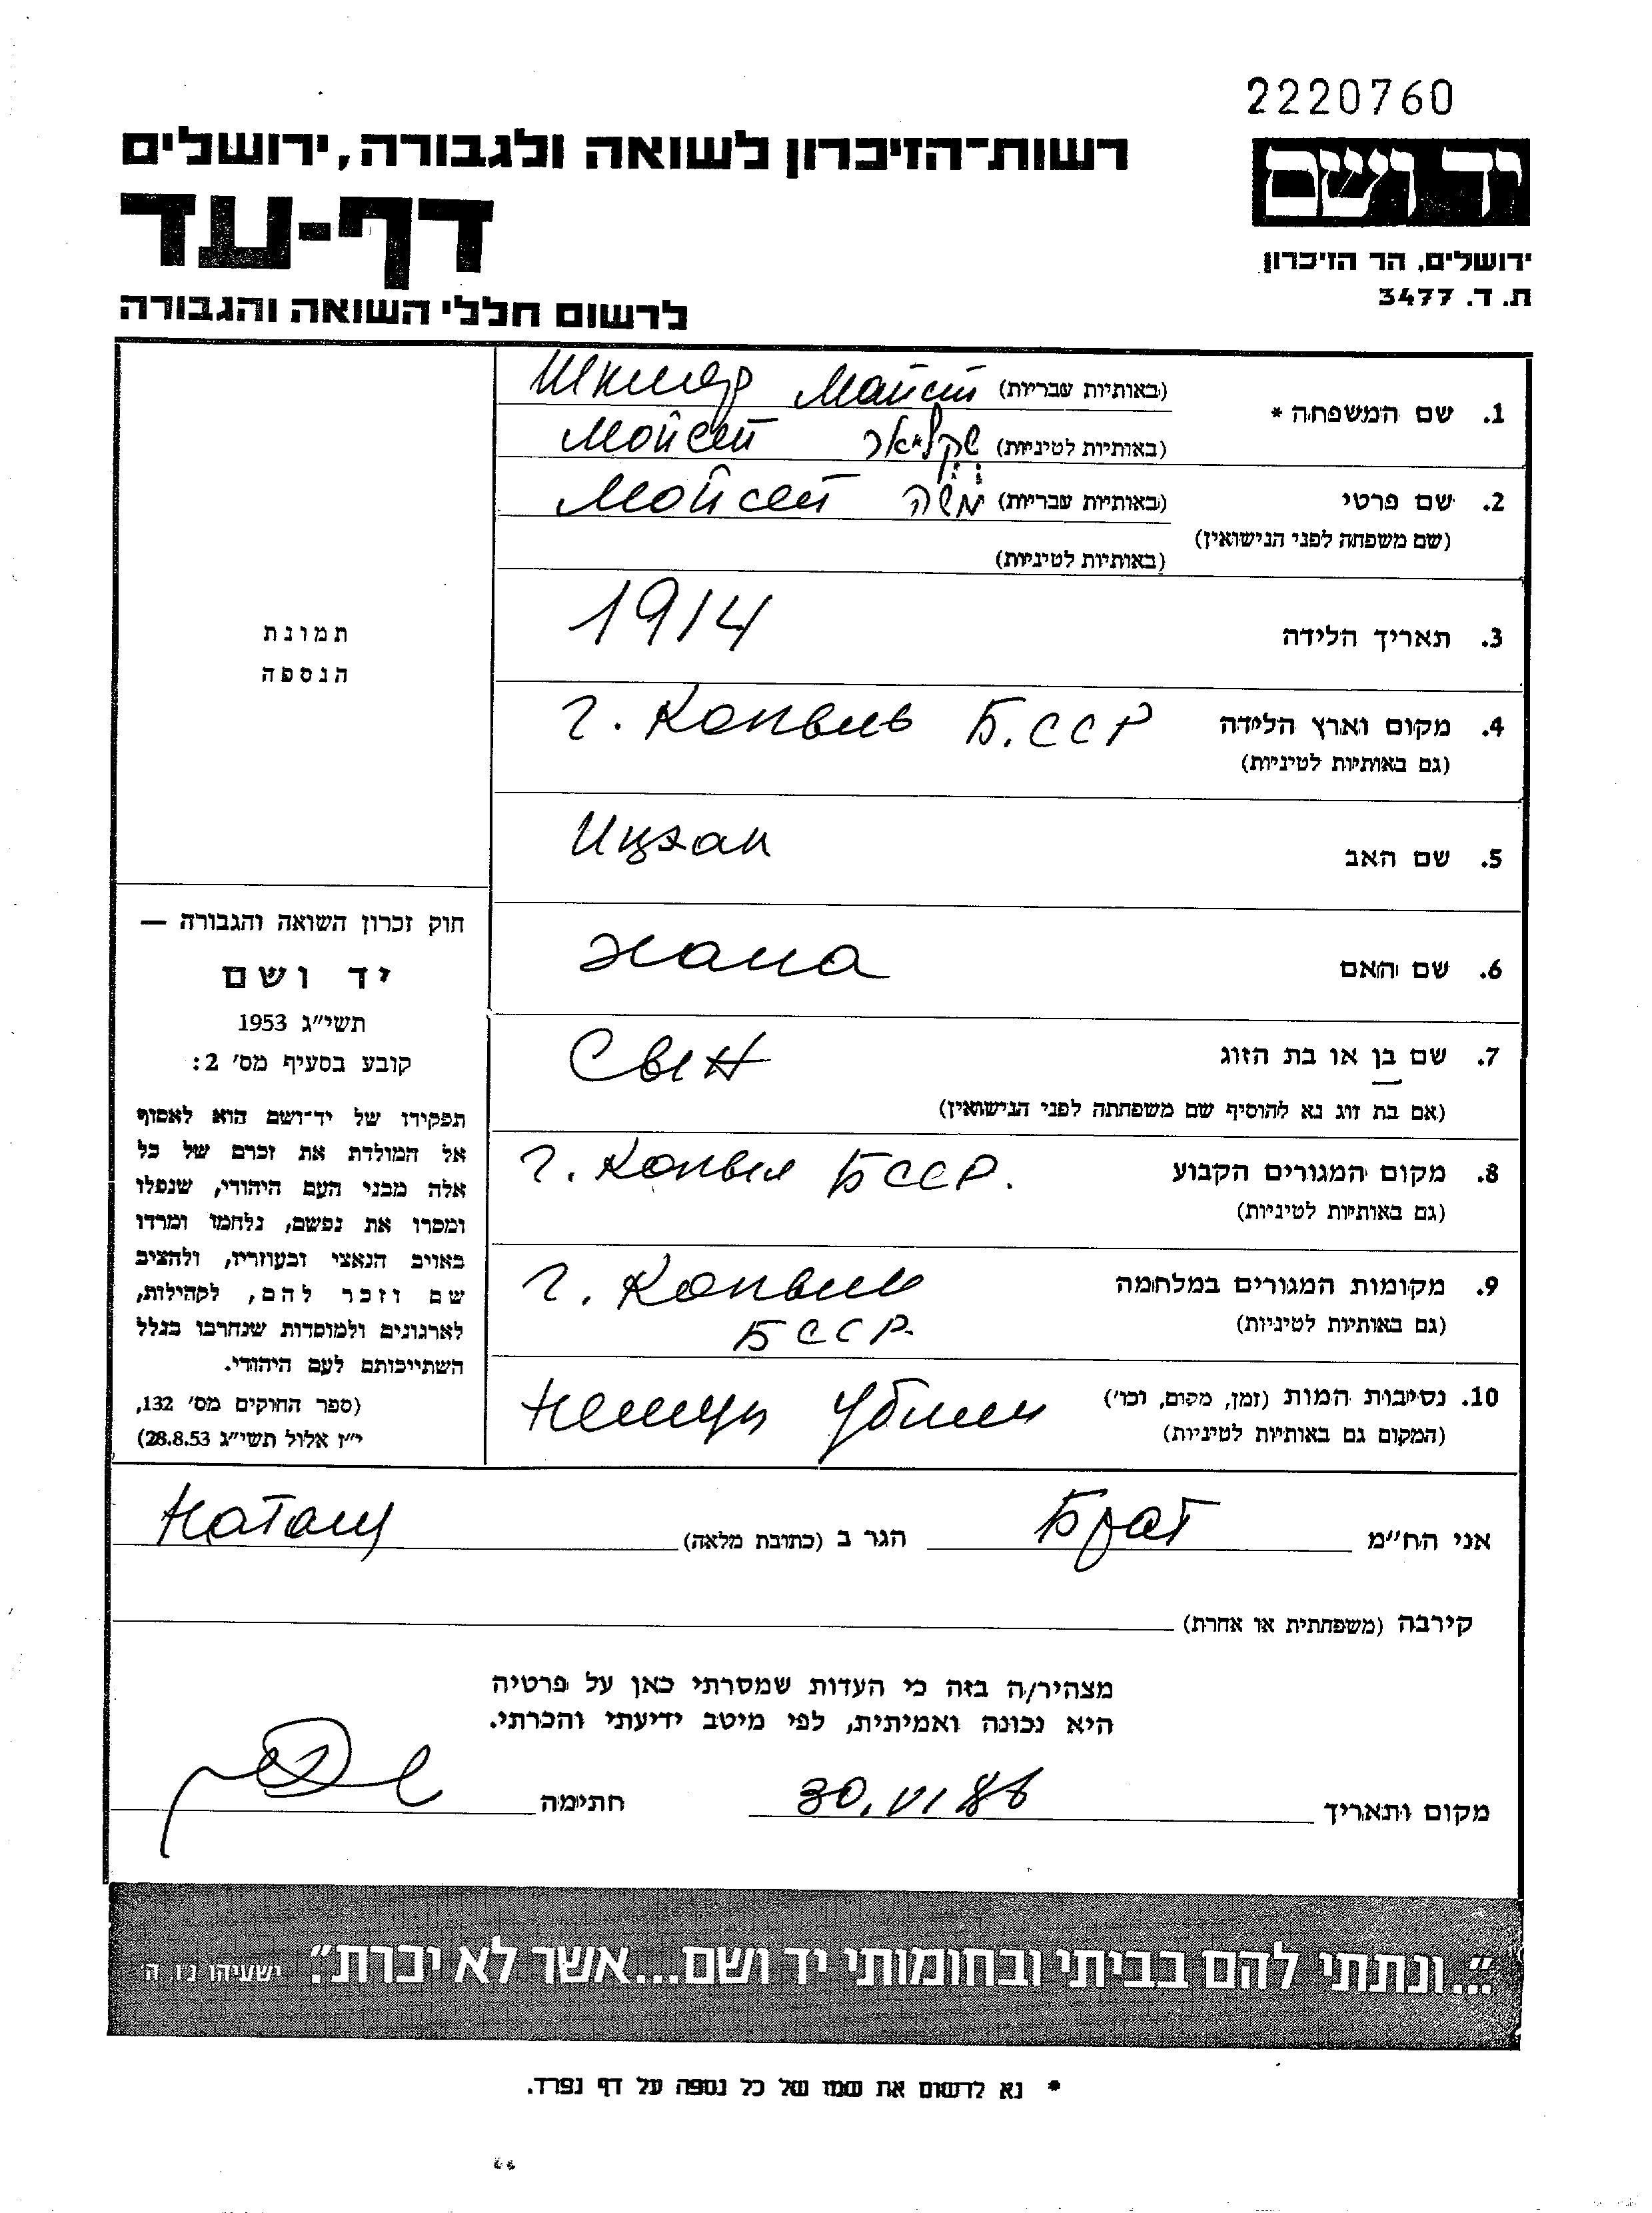 2220760
רשות־הזיכרון לשואה ולגבורה, ירושלים
יד ושם
דף-עד
ירושלים, הר הזיכרון
ת. ד. 3477
לרשום חללי השואה והגבורה
1. שם המשפחה * (באותיות עבריות) Шкляр Мойсей
(באותיות לטיניות) שקליאר Мойсей
2. שם פרטי (באותיות עבריות) משה Мойсей
(שם משפחה לפני הנישואין)
(באותיות לטיניות)
3. תאריך הלידה 1914
תמונת
הנספה
4. מקום וארץ הלידה г. Копыль Б.ССР
(גם באותיות לטיניות)
5. שם האב Ицхак
6. שם האם Хана
7. שם בן או בת הזוג
(אם בת זוג נא להוסיף שם משפחתה לפני הנישואין)
8. מקום המגורים הקבוע г. Копыл БССР.
(גם באותיות לטיניות)
9. מקומות המגורים במלחמה г. Копыль
(גם באותיות לטיניות) БССР.
10. נסיבות המות (זמן, מקום, וכו') Немцы убили
(המקום גם באותיות לטיניות)
חוק זכרון השואה והגבורה —
יד ושם
תשי״ג 1953
קובע בסעיף מס' 2:
תפקידו של יד־ושם הוא לאסוף
אל המולדת את זכרם של כל
אלה מבני העם היהודי, שנפלו
ומסרו את נפשם, נלחמו ומרדו
באויב הנאצי ובעוזריו, ולהציב
שם וזכר להם, לקהילות,
לארגונים ולמוסדות שנחרבו בגלל
השתייכותם לעם היהודי.
(ספר החוקים מס' 132,
י״ז אלול תשי״ג 28.8.53)
אני הח״מ Брат הגר ב (כתובת מלאה)
קירבה (משפחתית או אחרת)
מצהיר/ה בזה כי העדות שמסרתי כאן על פרטיה
היא נכונה ואמיתית, לפי מיטב ידיעתי והכרתי.
מקום ותאריך 30.VI 86 חתימה
״...ונתתי להם בביתי ובחומותי יד ושם...אשר לא יכרת״. ישעיהו נ״ו, ה
* נא לרשום את שמו של כל נספה על דף נפרד.